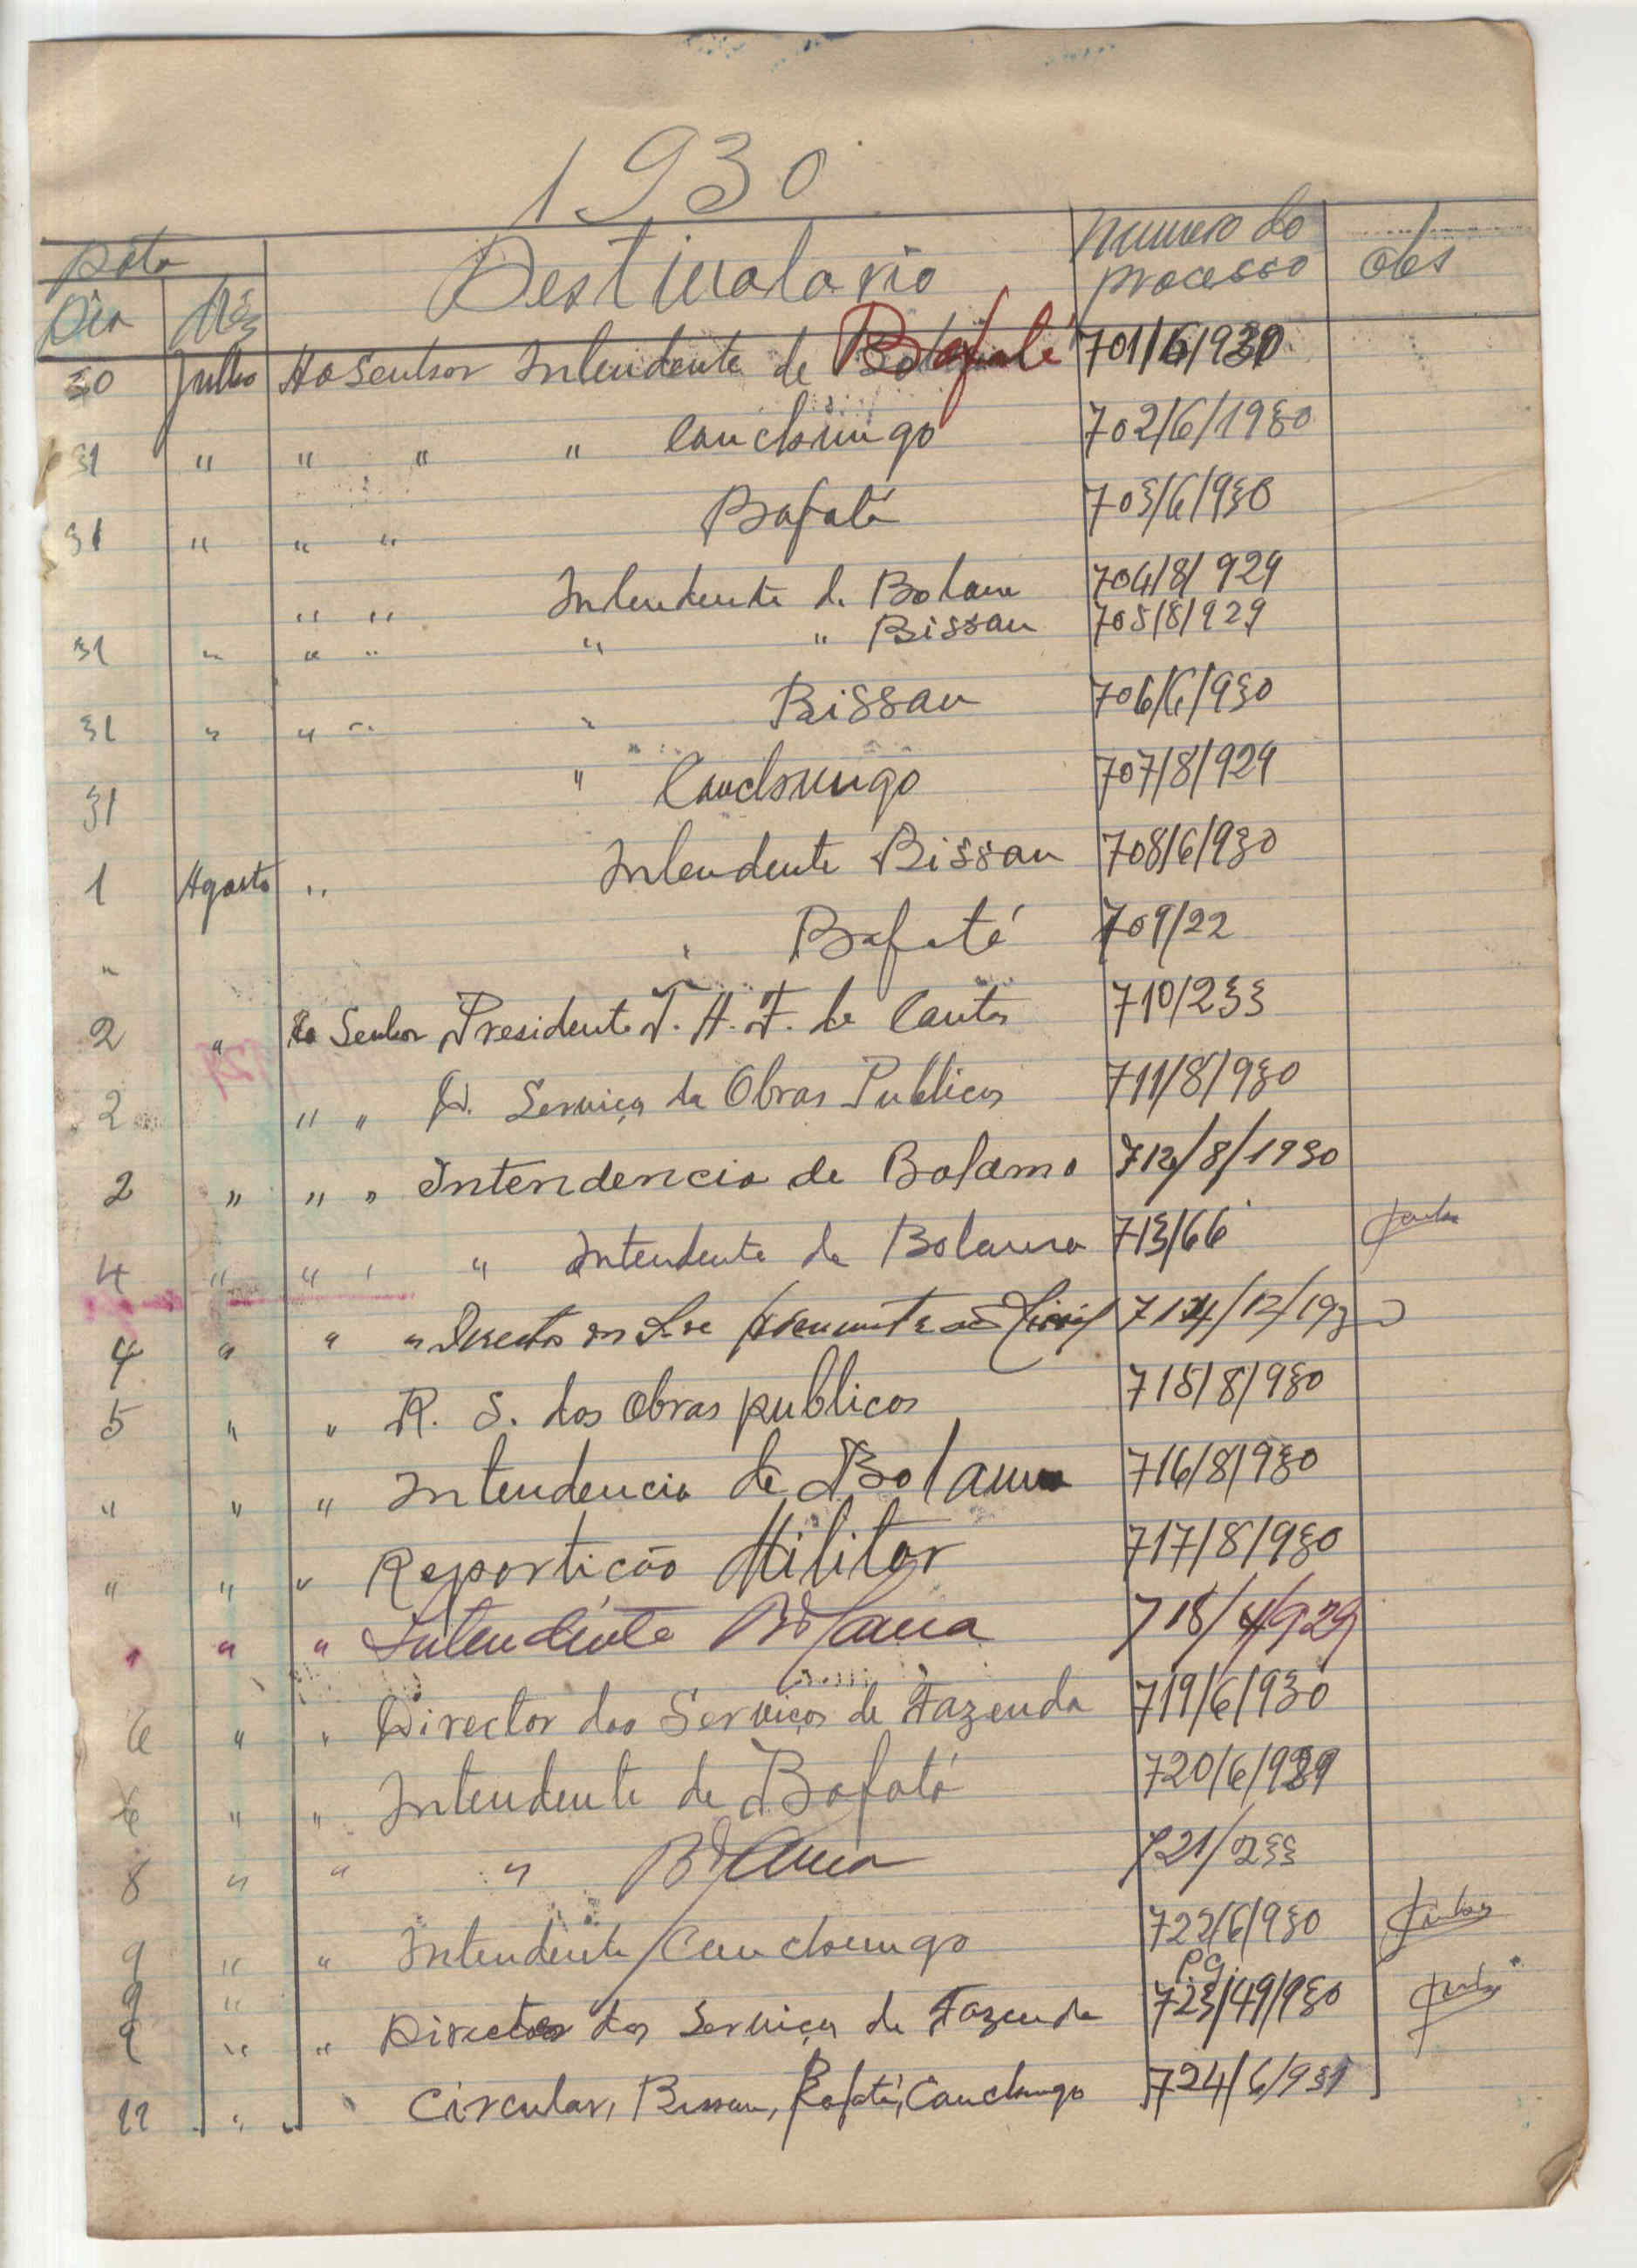 1930
Data Destinatario Numero do processo Obs
Dia Mês
30 Julho Ao Senhor Intendente de Bafatá 701/6/930
31 " " " " Canchungo 702/6/1930
31 " " " Bafatá 703/6/930
" " Intendente de Bolama 704/8/929
31 " " " " " Bissau 705/8/929
31 " " " " Bissau 706/6/930
31 " Canchungo 707/8/929
1 Agosto " Intendente Bissau 708/6/930
" " Bafatá 709/22
2 " Ao Senhor Presidente J. A. F. de 710/233
2 " " D. Serviços de Obras Publicas 711/8/930
2 " " " Intendencia de Bolama 712/8/1930
4 " " " " Intendente de Bolama 713/66
4 " " " Director 714/12/1930
5 " " R. S. dos Obras publicas 715/8/930
" " " Intendencia de Bolama 716/8/930
" " " Repartição Militar 717/8/930
" " " Intendente Bolama 718/4/929
6 " " Director dos Serviços de Fazenda 719/6/930
6 " " Intendente de Bafatá 720/6/929
8 " " " Bolama 721/233
9 " " Intendente Canchungo 722/6/930
9 " P.G.
9 " " Director dos Serviços de Fazenda 723/49/930
11 " " Circular, Bissau, Bafatá, Canchungo 724/6/931